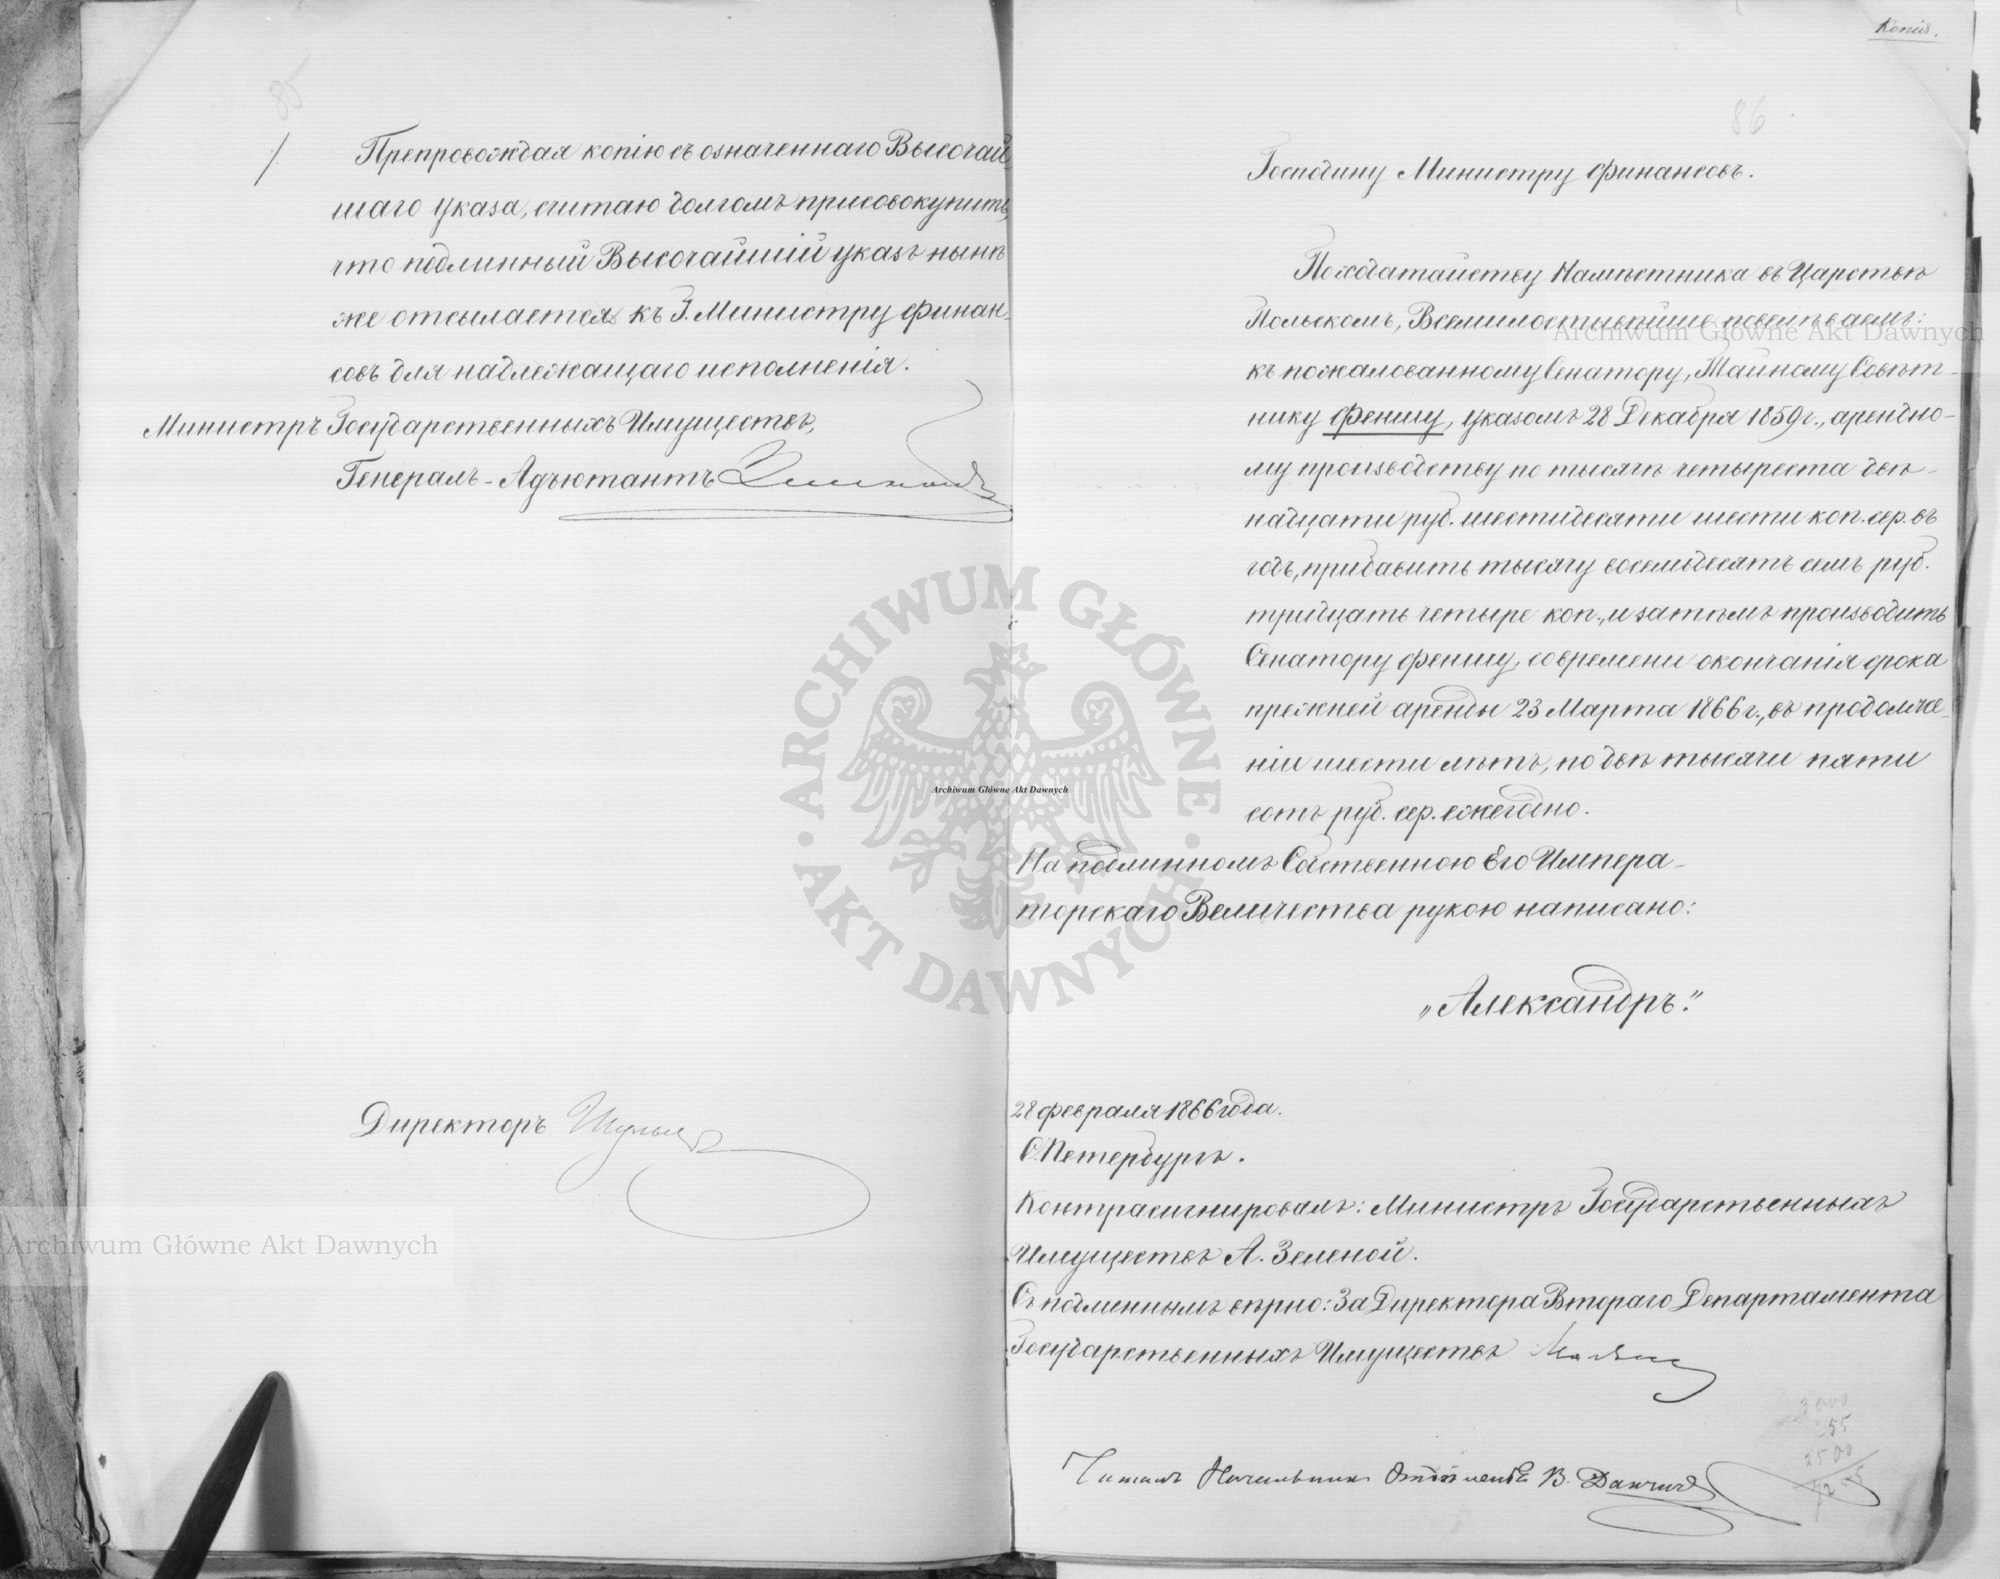 85
Препровождая копію съ означеннаго Высочай
шаго указа, считаю долгомъ присовокупить,
что подлинный Высочайшій указъ нынѣ
же отсылается къ Г. Министру Финан-
совъ для надлежащаго исполненія.
Министръ Государственныхъ Имуществъ,
Генералъ-Адъютантъ
Директоръ
Копія.
86
Господину Министру Финансовъ.
По ходатайству Намѣстника въ Царствѣ
Польскомъ, Всемилостивѣйше повелѣваемъ:
къ пожалованному Сенатору, Тайному Совѣт-
нику Феншу, указомъ 28 Декабря 1859 г., арендно-
му производству по тысячѣ четыреста двѣ-
надцати руб. шестидесяти шести коп. сер. въ
годъ, прибавить тысячу восемьдесятъ семь руб.
тридцать четыре коп., и затѣмъ производить
Сенатору Феншу, со времени окончанія срока
прежней аренды 23 Марта 1866 г., въ продолже-
ніи шести лѣтъ, по двѣ тысячи пяти
сотъ руб. сер. ежегодно.
На подлинномъ Собственною Его Импера-
торскаго Величества рукою написано:
„Александръ."
28 февраля 1866 года.
С. Петербургъ.
Контрасигнировалъ: Министръ Государственныхъ
Имуществъ А. Зеленой.
Съ подлиннымъ вѣрно: За Директора Втораго Департамента
Государственныхъ Имуществъ
Читалъ Начальникъ Отдѣленія В.
3000
2500
Archiwum Główne Akt Dawnych
Archiwum Główne Akt Dawnych
Archiwum Główne Akt Dawnych
ARCHIWUM GŁÓWNE · AKT DAWNYCH ·